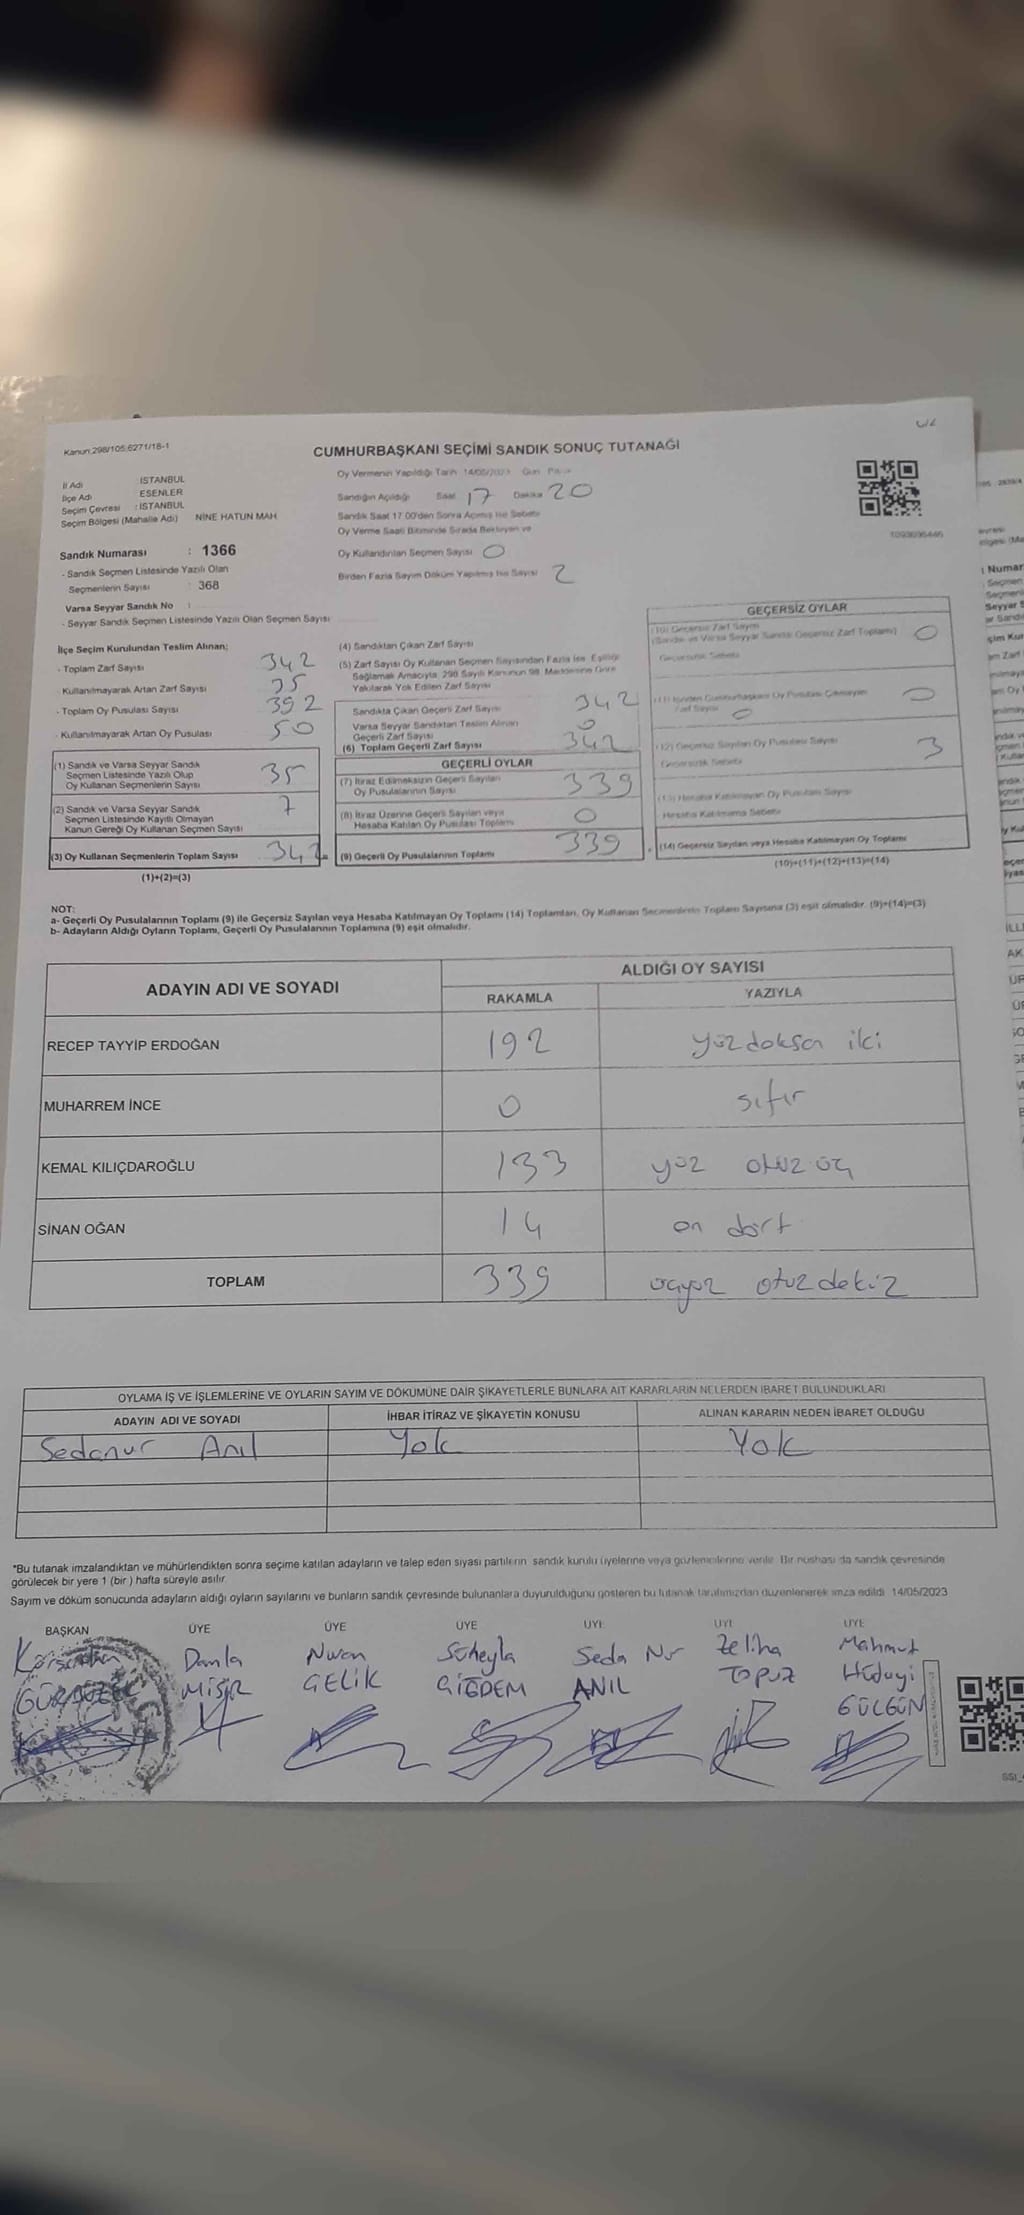 Kanun:298/105,6271/18-1
CUMHURBAŞKANI SEÇİMİ SANDIK SONUÇ TUTANAĞI
İl Adı İSTANBUL
İlçe Adı ESENLER
Seçim Çevresi : İSTANBUL
Seçim Bölgesi (Mahalle Adı) NİNE HATUN MAH
Sandık Numarası : 1366
- Sandık Seçmen Listesinde Yazılı Olan
Seçmenlerin Sayısı : 368
Varsa Seyyar Sandık No :
- Seyyar Sandık Seçmen Listesinde Yazılı Olan Seçmen Sayısı
Oy Vermenin Yapıldığı Tarih 14/05/2023 Gün Pazar
Sandığın Açıldığı Saat 17 Dakika 20
Sandık Saat 17.00'den Sonra Açılmış İse Sebebi
Oy Verme Saati Bitiminde Sırada Bekleyen ve
Oy Kullandırılan Seçmen Sayısı 0
Birden Fazla Sayım Döküm Yapılmış İse Sayısı 2
İlçe Seçim Kurulundan Teslim Alınan;
- Toplam Zarf Sayısı 342
- Kullanılmayarak Artan Zarf Sayısı
- Toplam Oy Pusulası Sayısı 392
- Kullanılmayarak Artan Oy Pusulası 50
(1) Sandık ve Varsa Seyyar Sandık
Seçmen Listesinde Yazılı Olup
Oy Kullanan Seçmenlerin Sayısı 35
(2) Sandık ve Varsa Seyyar Sandık
Seçmen Listesinde Kayıtlı Olmayan
Kanun Gereği Oy Kullanan Seçmen Sayısı 7
(3) Oy Kullanan Seçmenlerin Toplam Sayısı 342
(1)+(2)=(3)
(4) Sandıktan Çıkan Zarf Sayısı
(5) Zarf Sayısı Oy Kullanan Seçmen Sayısından Fazla İse, Eşitliği
Sağlamak Amacıyla, 298 Sayılı Kanunun 98. Maddesine Göre
Yakılarak Yok Edilen Zarf Sayısı
Sandıkta Çıkan Geçerli Zarf Sayısı 342
Varsa Seyyar Sandıktan Teslim Alınan
Geçerli Zarf Sayısı 0
(6) Toplam Geçerli Zarf Sayısı 342
GEÇERLİ OYLAR
(7) İtiraz Edilmeksizin Geçerli Sayılan
Oy Pusulalarının Sayısı 339
(8) İtiraz Üzerine Geçerli Sayılan veya
Hesaba Katılan Oy Pusulası Toplamı 0
(9) Geçerli Oy Pusulalarının Toplamı 339
GEÇERSİZ OYLAR
(10) Geçersiz Zarf Sayısı
(Sandık ve Varsa Seyyar Sandık Geçersiz Zarf Toplamı) 0
Geçersizlik Sebebi
(11) İçinden Cumhurbaşkanı Oy Pusulası Çıkmayan
Zarf Sayısı 0 0
(12) Geçersiz Sayılan Oy Pusulası Sayısı 3
Geçersizlik Sebebi
(13) Hesaba Katılmayan Oy Pusulası Sayısı
Hesaba Katılmama Sebebi
(14) Geçersiz Sayılan veya Hesaba Katılmayan Oy Toplamı
(10)+(11)+(12)+(13)=(14)
NOT:
a- Geçerli Oy Pusulalarının Toplamı (9) ile Geçersiz Sayılan veya Hesaba Katılmayan Oy Toplamı (14) Toplamları, Oy Kullanan Seçmenlerin Toplam Sayısına (3) eşit olmalıdır. (9)+(14)=(3)
b- Adayların Aldığı Oyların Toplamı, Geçerli Oy Pusulalarının Toplamına (9) eşit olmalıdır.
ADAYIN ADI VE SOYADI ALDIĞI OY SAYISI
RAKAMLA YAZIYLA
RECEP TAYYİP ERDOĞAN 192 yüzdoksan iki
MUHARREM İNCE 0 sıfır
KEMAL KILIÇDAROĞLU 133 yüz otuz üç
SİNAN OĞAN 14 on dört
TOPLAM 339 üçyüz otuzdokuz
OYLAMA İŞ VE İŞLEMLERİNE VE OYLARIN SAYIM VE DÖKÜMÜNE DAİR ŞİKAYETLERLE BUNLARA AİT KARARLARIN NELERDEN İBARET BULUNDUKLARI
ADAYIN ADI VE SOYADI İHBAR İTİRAZ VE ŞİKAYETİN KONUSU ALINAN KARARIN NEDEN İBARET OLDUĞU
Sedanur Anıl Yok Yok
*Bu tutanak imzalandıktan ve mühürlendikten sonra seçime katılan adayların ve talep eden siyasi partilerin sandık kurulu üyelerine veya gözlemcilerine verilir. Bir nüshası da sandık çevresinde
görülecek bir yere 1 (bir) hafta süreyle asılır.
Sayım ve döküm sonucunda adayların aldığı oyların sayılarını ve bunların sandık çevresinde bulunanlara duyurulduğunu gösteren bu tutanak tarafımızdan düzenlenerek imza edildi. 14/05/2023
BAŞKAN ÜYE ÜYE ÜYE ÜYE ÜYE ÜYE
Damla Süheyla Seda Nur Zeliha Mahmut
MISIR ÇELİK ÇİĞDEM ANIL TOPUZ Hüdayi
GÜLGÜN